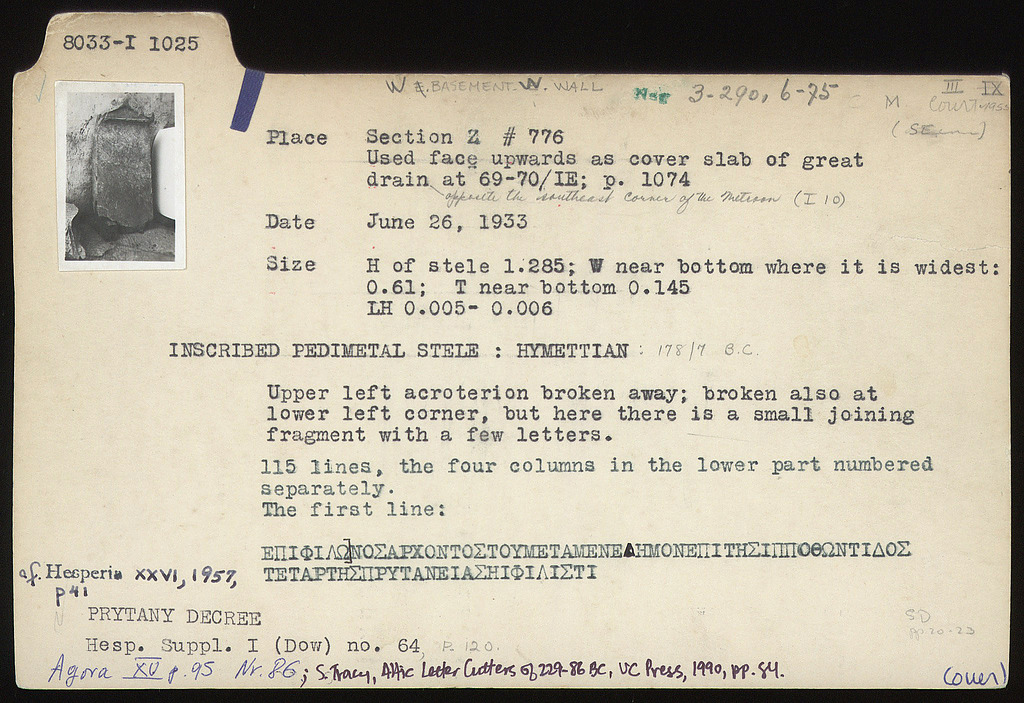 8033-I 1025
W E. BASEMENT W. WALL
Neg 3-290, 6-75
M
III IX
Court 1955
Place Section Z # 776
Used face upwards as cover slab of great
drain at 69-70/IE; p. 1074
opposite the southeast corner of the Metroon (I 10)
Date June 26, 1933
Size H of stele 1.285; W near bottom where it is widest:
0.61; T near bottom 0.145
LH 0.005- 0.006
INSCRIBED PEDIMETAL STELE : HYMETTIAN : 178/7 B.C.
Upper left acroterion broken away; broken also at
lower left corner, but here there is a small joining
fragment with a few letters.
115 lines, the four columns in the lower part numbered
separately.
The first line:
ΕΠΙΦΙΛΩ]ΝΟΣΑΡΧΟΝΤΟΣΤΟΥΜΕΤΑΜΕΝΕΔΗΜΟΝΕΠΙΤΗΣΙΠΠΟΘΩΝΤΙΔΟΣ
ΤΕΤΑΡΤΗΣΠΡΥΤΑΝΕΙΑΣΗΙΦΙΛΙΣΤΙ
cf. Hesperia XXVI, 1957,
p 41
PRYTANY DECREE
Hesp. Suppl. I (Dow) no. 64, P. 120.
Agora XV p. 95 Nr. 86; S. Tracy, Attic Letter Cutters of 229-86 BC, UC Press, 1990, pp. 84.
SD
pp 20-23
(over)